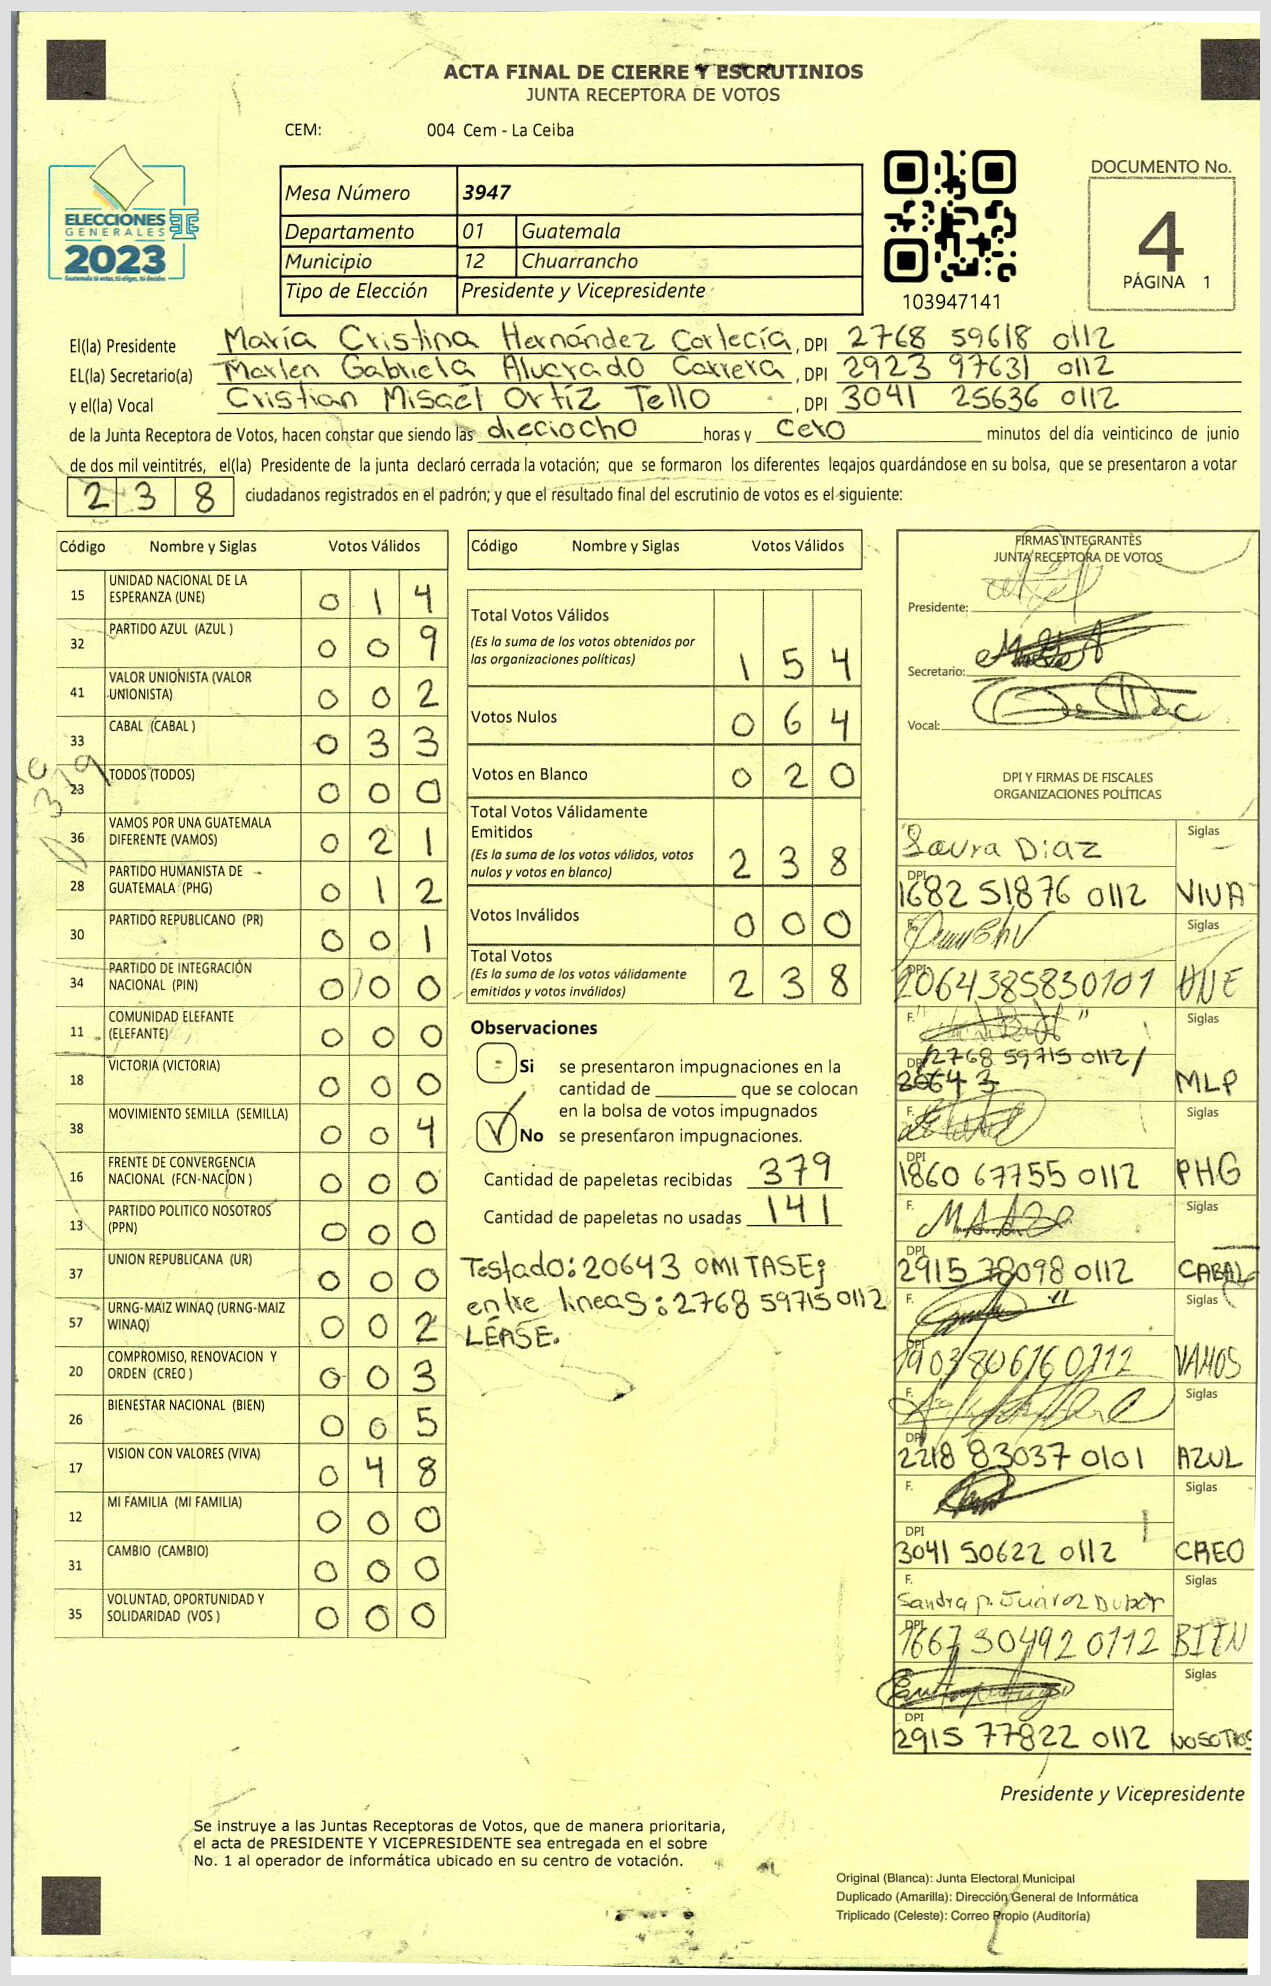 ACTA FINAL DE CIERRE Y ESCRUTINIOS
JUNTA RECEPTORA DE VOTOS
CEM: 004 Cem - La Ceiba
ELECCIONES
GENERALES
2023
Guatemala tú votas, tú eliges, tú decides
Mesa Número 3947
Departamento 01 Guatemala
Municipio 12 Chuarrancho
Tipo de Elección Presidente y Vicepresidente
103947141
DOCUMENTO No.
4
PÁGINA 1
El(la) Presidente María Cristina Hernández Cortecía, DPI 2768 59618 0112
EL(la) Secretario(a) Marlen Gabriela Alvarado Carrera, DPI 2923 97631 0112
y el(la) Vocal Cristian Misael Ortíz Tello, DPI 3041 25636 0112
de la Junta Receptora de Votos, hacen constar que siendo las dieciocho horas y cero minutos del día veinticinco de junio
de dos mil veintitrés, el(la) Presidente de la junta declaró cerrada la votación; que se formaron los diferentes legajos guardándose en su bolsa, que se presentaron a votar
238 ciudadanos registrados en el padrón; y que el resultado final del escrutinio de votos es el siguiente:
Código Nombre y Siglas Votos Válidos
15 UNIDAD NACIONAL DE LA ESPERANZA (UNE) 0 1 4
32 PARTIDO AZUL (AZUL ) 0 0 9
41 VALOR UNIONISTA (VALOR UNIONISTA) 0 0 2
33 CABAL (CABAL ) 0 3 3
23 TODOS (TODOS) 0 0 0
36 VAMOS POR UNA GUATEMALA DIFERENTE (VAMOS) 0 2 1
28 PARTIDO HUMANISTA DE GUATEMALA (PHG) 0 1 2
30 PARTIDO REPUBLICANO (PR) 0 0 1
34 PARTIDO DE INTEGRACIÓN NACIONAL (PIN) 0 0 0
11 COMUNIDAD ELEFANTE (ELEFANTE) 0 0 0
18 VICTORIA (VICTORIA) 0 0 0
38 MOVIMIENTO SEMILLA (SEMILLA) 0 0 4
16 FRENTE DE CONVERGENCIA NACIONAL (FCN-NACION ) 0 0 0
13 PARTIDO POLITICO NOSOTROS (PPN) 0 0 0
37 UNION REPUBLICANA (UR) 0 0 0
57 URNG-MAIZ WINAQ (URNG-MAIZ WINAQ) 0 0 2
20 COMPROMISO, RENOVACION Y ORDEN (CREO ) 0 0 3
26 BIENESTAR NACIONAL (BIEN) 0 0 5
17 VISION CON VALORES (VIVA) 0 4 8
12 MI FAMILIA (MI FAMILIA) 0 0 0
31 CAMBIO (CAMBIO) 0 0 0
35 VOLUNTAD, OPORTUNIDAD Y SOLIDARIDAD (VOS ) 0 0 0
Código Nombre y Siglas Votos Válidos
Total Votos Válidos
(Es la suma de los votos obtenidos por
las organizaciones políticas) 1 5 4
Votos Nulos 0 6 4
Votos en Blanco 0 2 0
Total Votos Válidamente
Emitidos
(Es la suma de los votos válidos, votos
nulos y votos en blanco) 2 3 8
Votos Inválidos 0 0 0
Total Votos
(Es la suma de los votos válidamente
emitidos y votos inválidos) 2 3 8
Observaciones
Si se presentaron impugnaciones en la
cantidad de ________ que se colocan
en la bolsa de votos impugnados
No se presentaron impugnaciones.
Cantidad de papeletas recibidas 379
Cantidad de papeletas no usadas 141
Testado: 20643 OMITASE;
entre lineas: 2768 59715 0112
LÉASE.
FIRMAS INTEGRANTES
JUNTA RECEPTORA DE VOTOS
Presidente:
Secretario:
Vocal:
DPI Y FIRMAS DE FISCALES
ORGANIZACIONES POLÍTICAS
F. Laura Diaz Siglas
DPI 1682 51876 0112 VIVA
F. Siglas
DPI 2064385830101 UNE
F. Siglas
DPI /2768 59715 0112/
20643 MLP
F. Siglas
DPI 1860 67755 0112 PHG
F. Siglas
DPI 2915 78098 0112 CABAL
F. Siglas
DPI 1903806160112 VAMOS
F. Siglas
DPI 2218 83037 0101 AZUL
F. Siglas
DPI 3041 50622 0112 CREO
F. Sandra P. Juárez Siglas
DPI 1667 30492 0112 BIEN
Siglas
DPI 2915 77822 0112 NOSOTROS
Presidente y Vicepresidente
Se instruye a las Juntas Receptoras de Votos, que de manera prioritaria,
el acta de PRESIDENTE Y VICEPRESIDENTE sea entregada en el sobre
No. 1 al operador de informática ubicado en su centro de votación.
Original (Blanca): Junta Electoral Municipal
Duplicado (Amarilla): Dirección General de Informática
Triplicado (Celeste): Correo Propio (Auditoría)